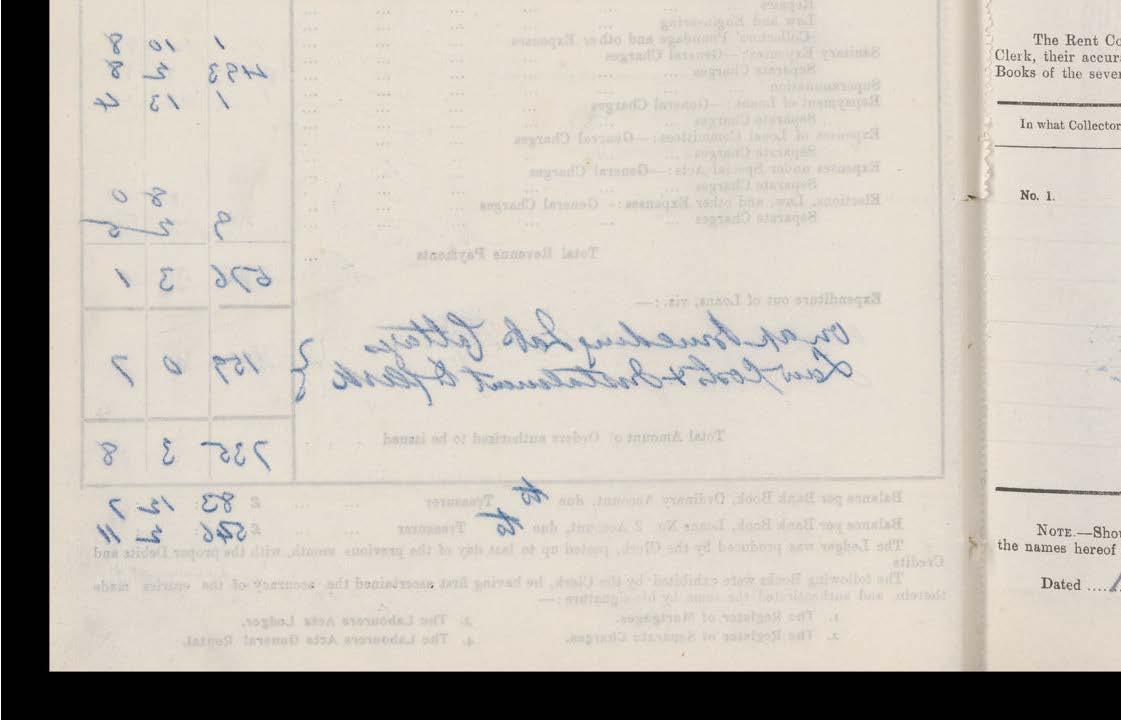 Repairs
Law and Engineering
Collectors' Poundage and other Expenses 1 10 8
Sanitary Expenses:—General Charges 493 2 8
Separate Charges
Superannuation 1 13 4
Repayment of Loans:—General Charges
Separate Charges
Expenses of Local Committees:—General Charges
Separate Charges
Expenses under Special Acts:—General Charges
Separate Charges
Elections, Law, and other Expenses:—General Charges 8 0
Separate Charges 9 2
Total Revenue Payments 576 3 1
Expenditure out of Loans, viz.:—
Lab Cottages
Law Costs & Instalment to Clerk } 159 0 7
Total Amount of Orders authorized to be issued 735 3 8
Balance per Bank Book, Ordinary Account, due to Treasurer £ 83 12 7
Balance per Bank Book, Loans No. 2 Account, due to Treasurer £ 546 2 11
The Ledger was produced by the Clerk, posted up to last day of the previous month, with the proper Debits and
Credits
The following Books were exhibited by the Clerk, he having first ascertained the accuracy of the entries made
therein, and authenticated the same by his signature:—
1. The Register of Mortgages. 3. The Labourers Acts Ledger.
2. The Register of Separate Charges. 4. The Labourers Acts General Rental.
The Rent Co
Clerk, their accur
Books of the seve
In what Collector
No. 1.
NOTE.—Sho
the names hereof
Dated